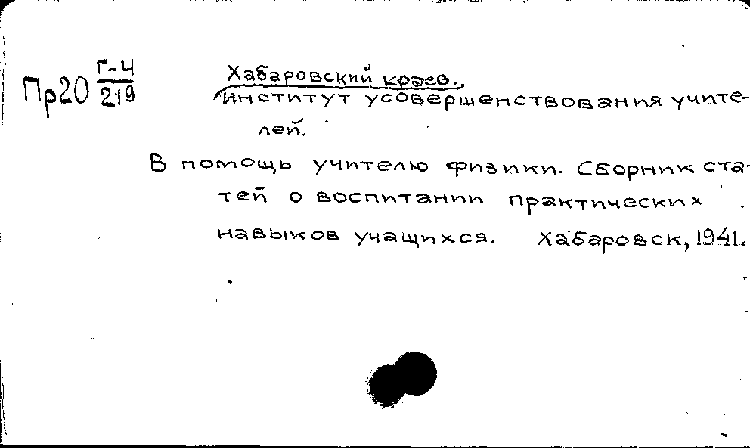 Пр20 Г-4/219
Хабаровский краев.
институт усовершенствования учите-
лей.
В помощь учителю физики. Сборник ста-
тей о воспитании практических
навыков учащихся. Хабаровск, 1941.